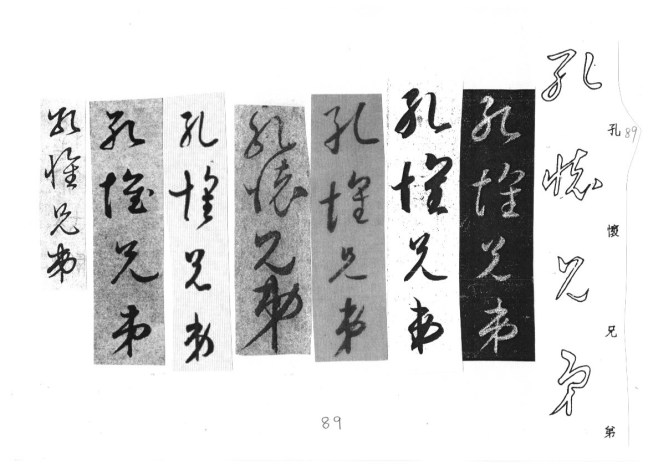 孔懷兄弟
孔懷兄弟
89
孔懷兄弟
孔懷兄弟
孔懷兄弟
孔懷兄弟
孔懷兄弟
孔懷兄弟
孔懷兄弟
89